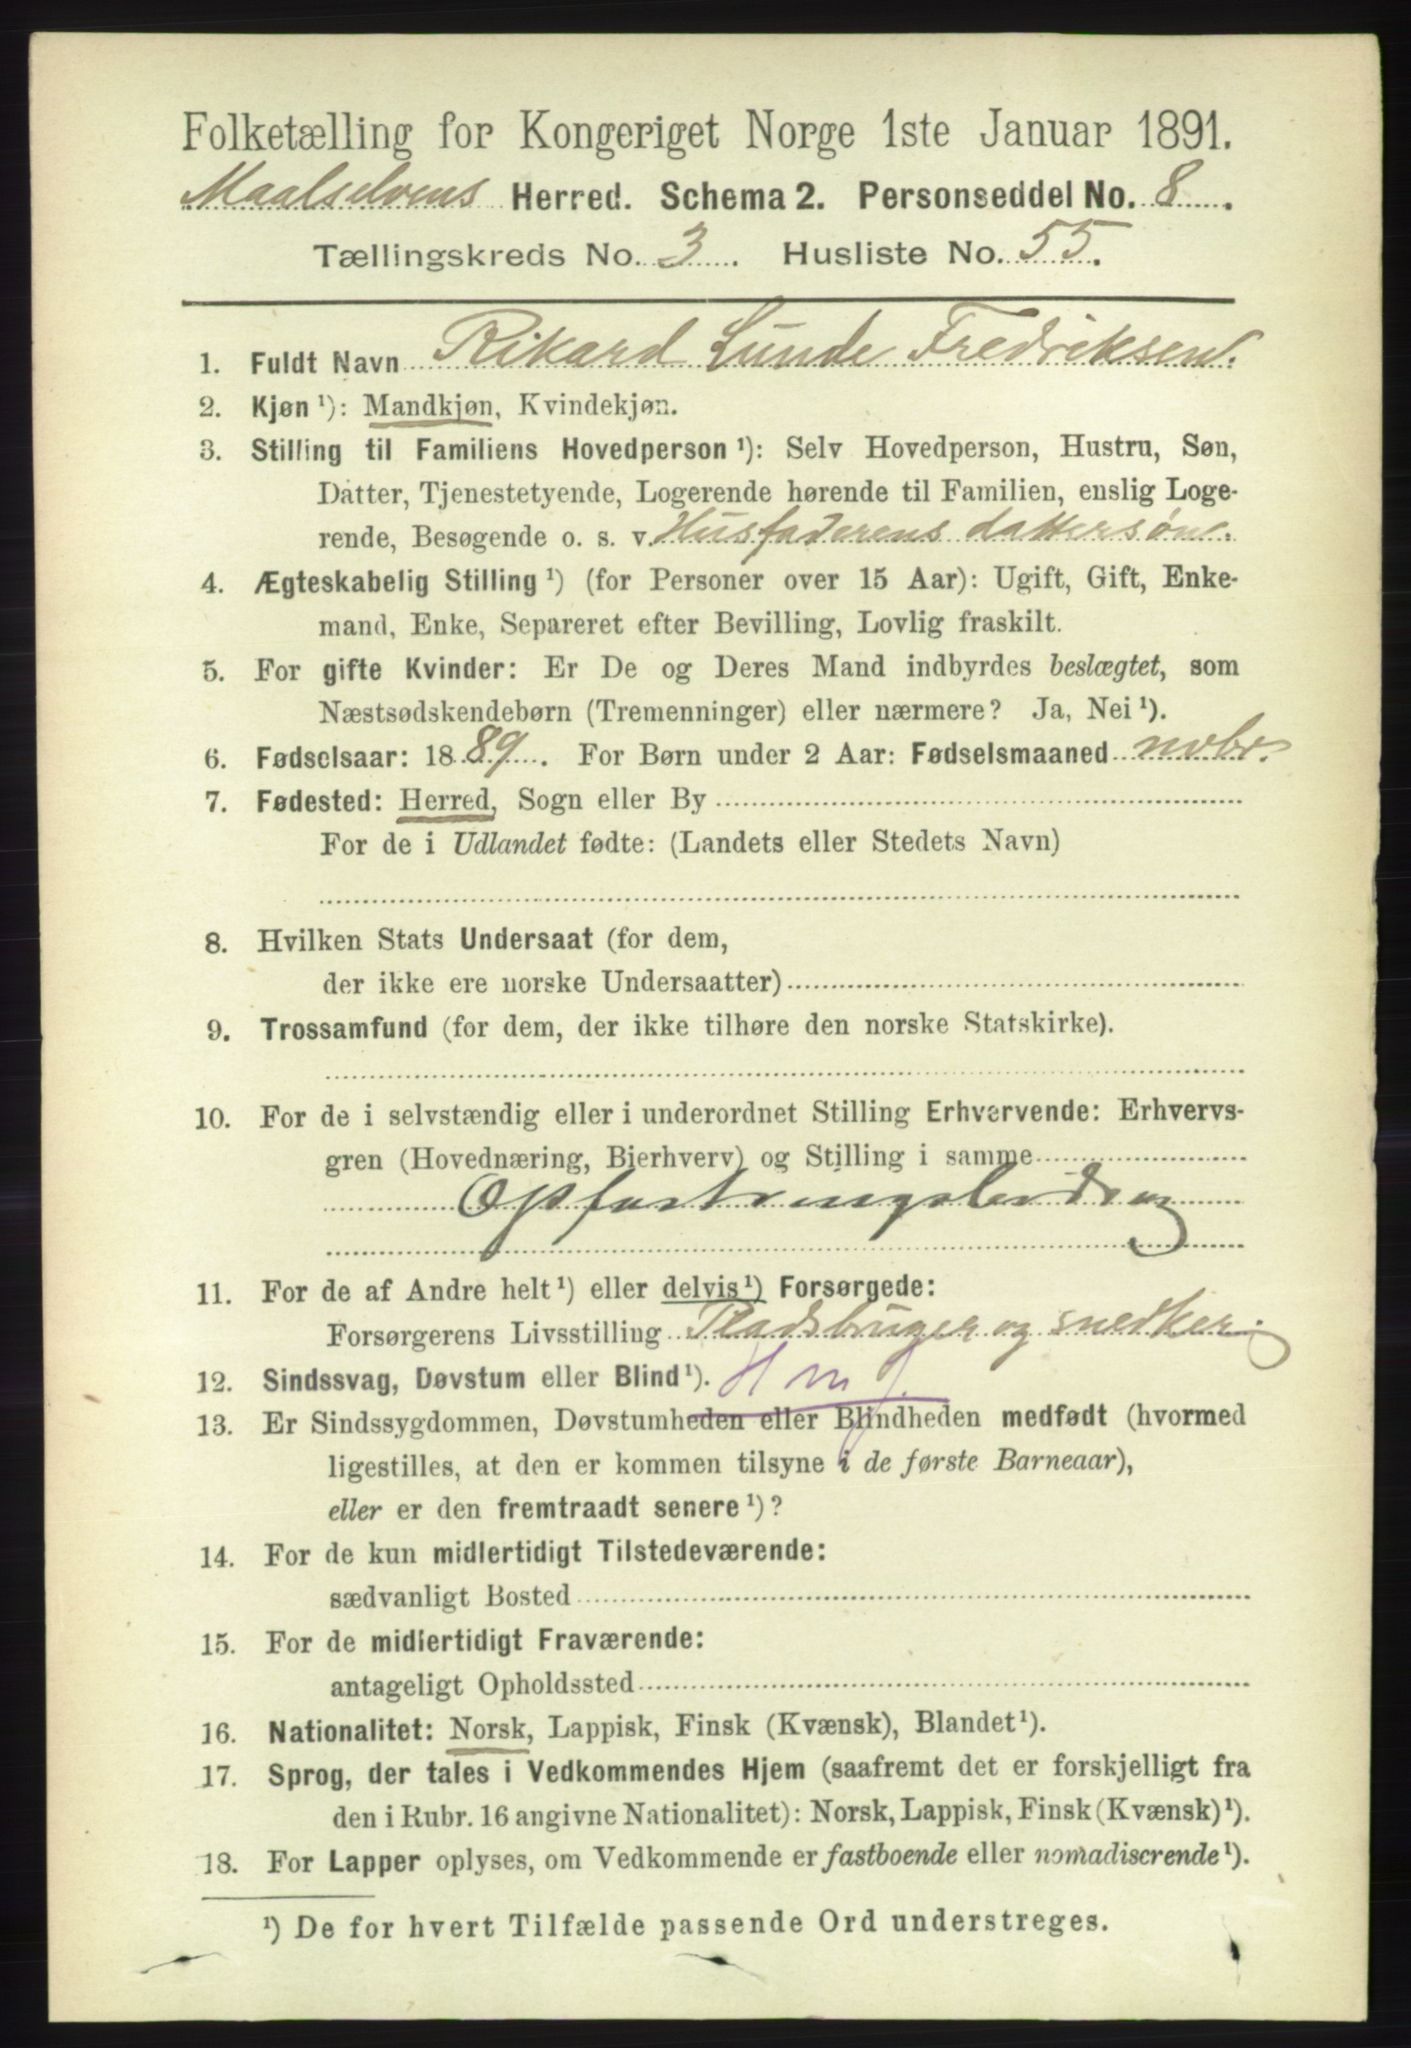 Folketælling for Kongeriget Norge 1ste Januar 1891.
Maalselvens Herred. Schema 2. Personseddel No. 8.
Tællingskreds No. 3. Husliste No. 55.
1. Fuldt Navn Rikard Lunde Fredriksen.
2. Kjøn ¹): Mandkjøn, Kvindekjøn.
3. Stilling til Familiens Hovedperson ¹): Selv Hovedperson, Hustru, Søn,
Datter, Tjenestetyende, Logerende hørende til Familien, enslig Loge-
rende, Besøgende o. s. v. Husfaderens dattersøn.
4. Ægteskabelig Stilling ¹) (for Personer over 15 Aar): Ugift, Gift, Enke-
mand, Enke, Separeret efter Bevilling, Lovlig fraskilt.
5. For gifte Kvinder: Er De og Deres Mand indbyrdes beslægtet, som
Næstsødskendebørn (Tremenninger) eller nærmere? Ja, Nei ¹).
6. Fødselsaar: 1889. For Børn under 2 Aar: Fødselsmaaned novbr.
7. Fødested: Herred, Sogn eller By
For de i Udlandet fødte: (Landets eller Stedets Navn)
8. Hvilken Stats Undersaat (for dem,
der ikke ere norske Undersaatter)
9. Trossamfund (for dem, der ikke tilhøre den norske Statskirke).
10. For de i selvstændig eller i underordnet Stilling Erhvervende: Erhvervs-
gren (Hovednæring, Bierhverv) og Stilling i samme
Opfostringsbidrag
11. For de af Andre helt ¹) eller delvis ¹) Forsørgede:
Forsørgerens Livsstilling Pladsbruger og snedker.
12. Sindssvag, Døvstum eller Blind ¹).
13. Er Sindssygdommen, Døvstumheden eller Blindheden medfødt (hvormed
ligestilles, at den er kommen tilsyne i de første Barneaar),
eller er den fremtraadt senere ¹)?
14. For de kun midlertidigt Tilstedeværende:
sædvanligt Bosted
15. For de midlertidigt Fraværende:
antageligt Opholdssted
16. Nationalitet: Norsk, Lappisk, Finsk (Kvænsk), Blandet ¹).
17. Sprog, der tales i Vedkommendes Hjem (saafremt det er forskjelligt fra
den i Rubr. 16 angivne Nationalitet): Norsk, Lappisk, Finsk (Kvænsk) ¹).
18. For Lapper oplyses, om Vedkommende er fastboende eller nomadiserende ¹).
¹) De for hvert Tilfælde passende Ord understreges.